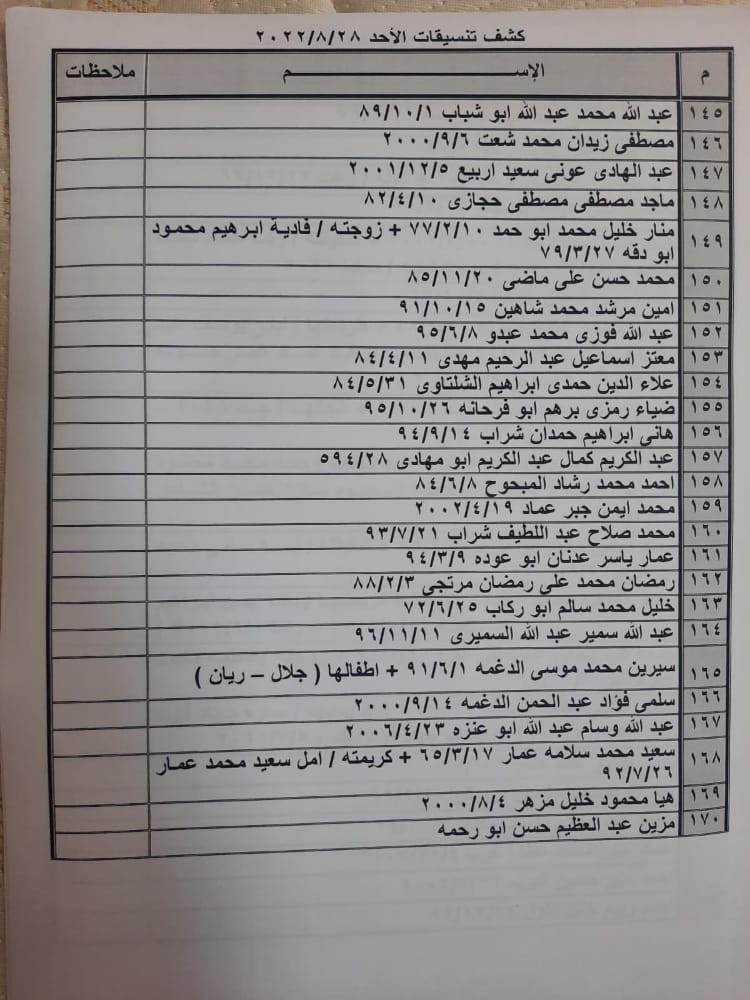 كشف تنسيقات الأحد ٢٠٢٢/٨/٢٨
م الإســـــــــم ملاحظات
١٤٥ عبد الله محمد عبد الله ابو شباب ٨٩/١٠/١
١٤٦ مصطفى زيدان محمد شعت ٢٠٠٠/٩/٦
١٤٧ عبد الهادى عونى سعيد اربيع ٢٠٠١/١٢/٥
١٤٨ ماجد مصطفى مصطفى حجازى ٨٢/٤/١٠
١٤٩ منار خليل محمد ابو حمد ٧٧/٢/١٠ + زوجته / فادية ابرهيم محمود
ابو دقه ٧٩/٣/٢٧
١٥٠ محمد حسن على ماضى ٨٥/١١/٢٠
١٥١ امين مرشد محمد شاهين ٩١/١٠/١٥
١٥٢ عبد الله فوزى محمد عبدو ٩٥/٦/٨
١٥٣ معتز اسماعيل عبد الرحيم مهدى ٨٤/٤/١١
١٥٤ علاء الدين حمدى ابراهيم الشلتاوى ٨٤/٥/٣١
١٥٥ ضياء رمزى برهم ابو فرحانه ٩٥/١٠/٢٦
١٥٦ هانى ابراهيم حمدان شراب ٩٤/٩/١٤
١٥٧ عبد الكريم كمال عبد الكريم ابو مهادى ٥٩٤/٢٨
١٥٨ احمد محمد رشاد المبحوح ٨٤/٦/٨
١٥٩ محمد ايمن جبر عماد ٢٠٠٢/٤/١٩
١٦٠ محمد صلاح عبد اللطيف شراب ٩٣/٧/٢١
١٦١ عمار ياسر عدنان ابو عوده ٩٤/٣/٩
١٦٢ رمضان محمد على رمضان مرتجى ٨٨/٢/٣
١٦٣ خليل محمد سالم ابو ركاب ٧٢/٦/٢٥
١٦٤ عبد الله سمير عبد الله السميرى ٩٦/١١/١١
١٦٥ سيرين محمد موسى الدغمه ٩١/٦/١ + اطفالها ( جلال – ريان )
١٦٦ سلمى فؤاد عبد الحمن الدغمه ٢٠٠٠/٩/١٤
١٦٧ عبد الله وسام عبد الله ابو عنزه ٢٠٠٦/٤/٢٣
١٦٨ سعيد محمد سلامه عمار ٦٥/٣/١٧ + كريمته / امل سعيد محمد عمار
٩٢/٧/٢٦
١٦٩ هيا محمود خليل مزهر ٢٠٠٠/٨/٤
١٧٠ مزين عبد العظيم حسن ابو رحمه